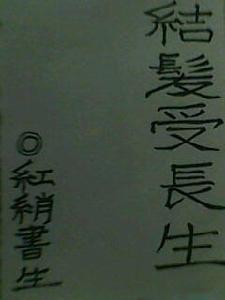 結髮受長生
◎紅綃書生